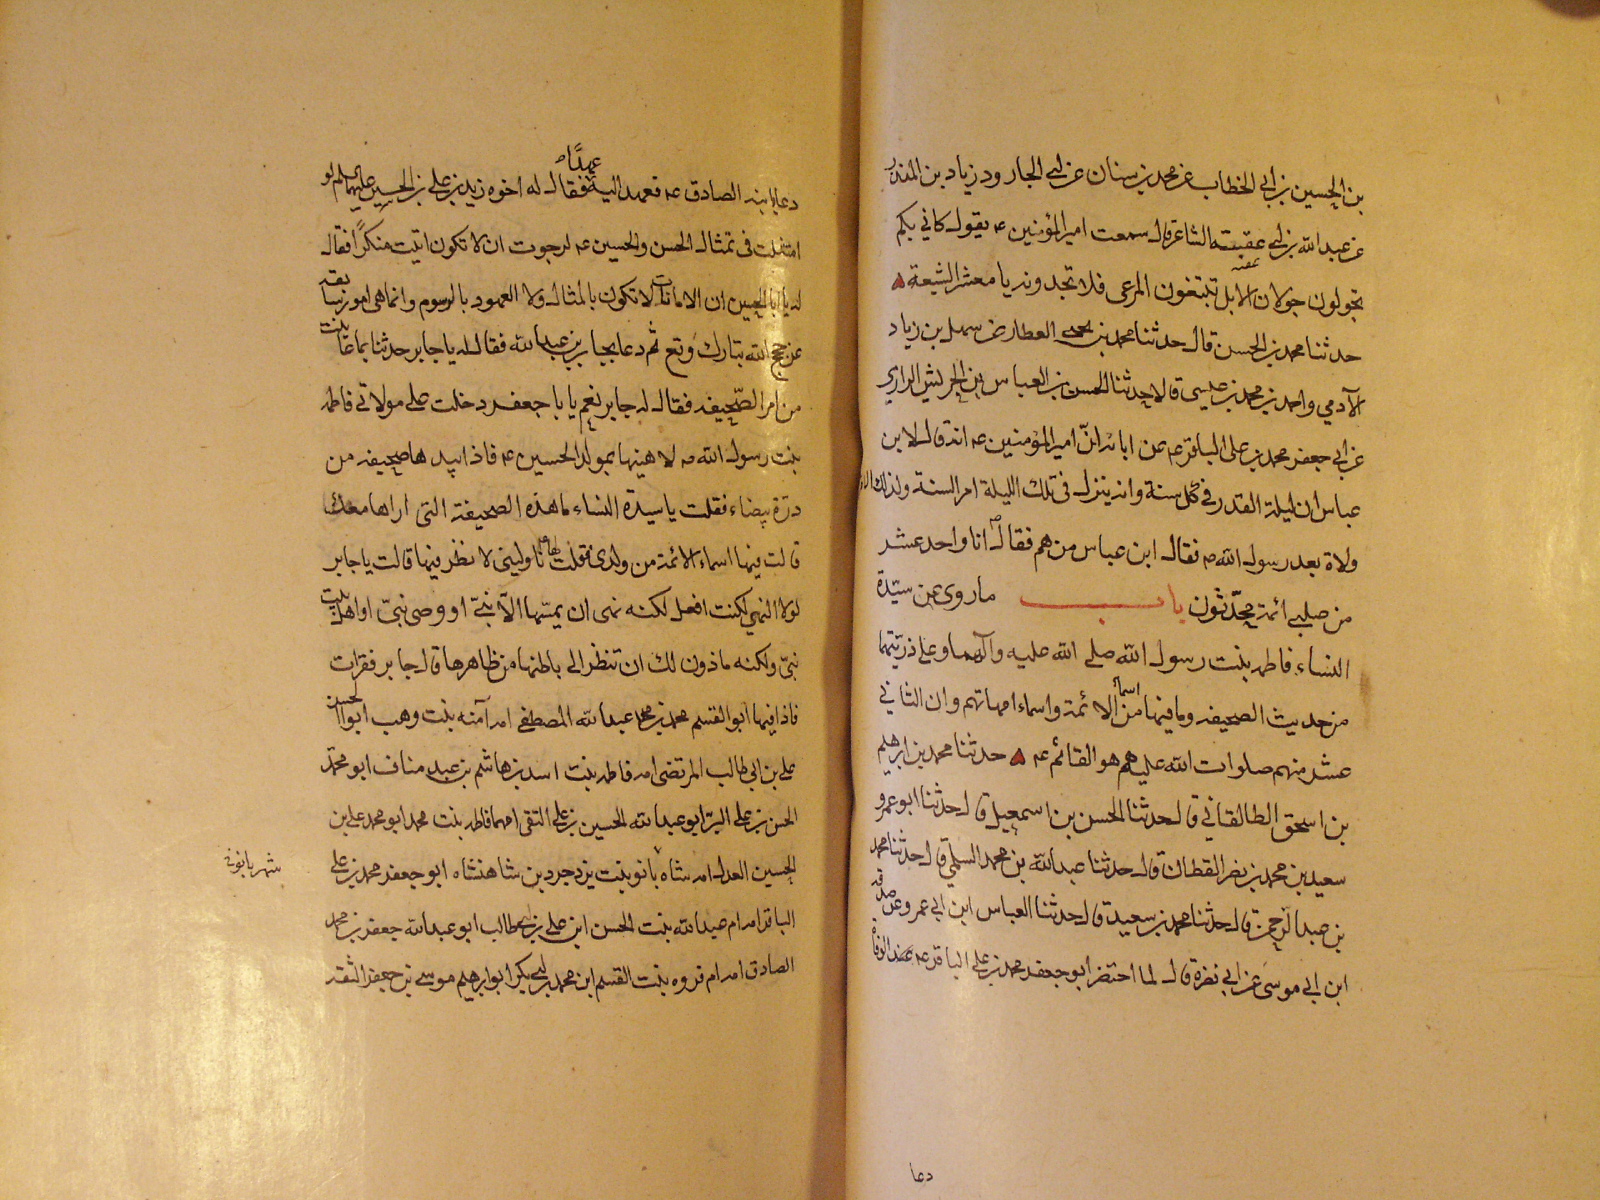 بن الحسين بن ابي الخطاب عن محمد بن سنان عن ابي الجارود زياد بن المنذر
عن عبد الله بن ابي عقبة الشاعر قال سمعت امير المؤمنين ع يقول كاني بكم
عقبه
تجولون جولان الابل تبتغون المرعى فلا تجدونه يا معشر الشيعة
حدثنا محمد بن الحسن قال حدثنا محمد بن يحيى العطار عن سهل بن زياد
الآدمي واحمد بن محمد بن عيسى قالا حدثنا الحسن بن العباس بن الحريش الرازي
عن ابي جعفر محمد بن علي الباقر ع عن ابائه انّ امير المؤمنين ع انه قال لابن
عباس ان ليلة القدر في كل سنة وانه ينزل في تلك الليلة امر السنة ولذلك الامر
ولاة بعد رسول الله ص فقال ابن عباس من هم فقال انا واحد عشر
من صلبي ائمة محدّثون باب ما روى عن سيّدة
النساء فاطمه بنت رسول الله صلى الله عليه وآلهما وعلى ذريتهما
من حديث الصحيفه وما فيها من اسماء الائمة واسماء امهاتهم وان الثاني
عشر منهم صلوات الله عليهم هو القائم ع حدثنا محمد بن ابرهيم
بن اسحق الطالقاني قال حدثنا الحسن بن اسمعيل قال حدثنا ابو عمرو
سعيد بن محمد بن نصر القطان قال حدثنا عبد الله بن محمد السلمي قال حدثنا محمد
بن عبد الرحمن قال حدثنا محمد بن سعيد قال حدثنا العباس ابن ابي عمرو عن صدقه
ابن ابي موسى عن ابي نضرة قال لما احتضر ابو جعفر محمد بن علي الباقر ع عند الوفاة
دعا
دعا بابنه الصادق ع فعهد اليه عهدًا فقال له اخوه زيد بن علي بن الحسين عليهما السلم لو
امتثلت فى تمثال الحسن والحسين ع لرجوت ان لا تكون اتيت منكرًا فقال
له يا ابا الحسين ان الامانات لا تكون بالمثال ولا العهود بالرسوم وانما هى امور سابقه
عن حجج الله تبارك وتع ثم دعا بجابر بن عبد الله فقال له يا جابر حدثنا بما عاينت
من امر الصّحيفه فقال له جابر نعم يا با جعفر دخلت على مولاتى فاطمه
بنت رسول الله ص لاهنيها بمولد الحسين ع فاذا بيدها صحيفه من
درة بيضاء فقلت يا سيدة النساء ما هذه الصحيفة التى اراها معك
قالت فيها اسماء الائمة من ولدى فقلت لها ناولينى لانظر فيها قالت يا جابر
لولا النهى لكنت افعل لكنه نهى ان يمسّها الا نبىّ او وصى نبىّ او اهل بيت
نبىّ ولكنه ماذون لك ان تنظر الى باطنها من ظاهرها قال جابر فقرات
فاذا فيها ابو القسم محمد بن عبد الله المصطفى امه آمنه بنت وهب ابو الحسن
على بن ابى طالب المرتضى امه فاطمه بنت اسد بن هاشم بن عبد مناف ابو محمّد
الحسن بن على البرّ ابو عبد الله الحسين بن على التقى امهما فاطمه بنت محمد ابو محمد على بن
الحسين العدل امه شاه بانو بنت يزدجرد بن شاهنشاه ابو جعفر محمد بن على
شهر بانويه
الباقر امه ام عبد الله بنت الحسن ابن على بن ابيطالب ابو عبد الله جعفر بن محمد
الصادق امه ام فروه بنت القسم ابن محمد بن ابى بكر ابو ابرهيم موسى بن جعفر الثقه